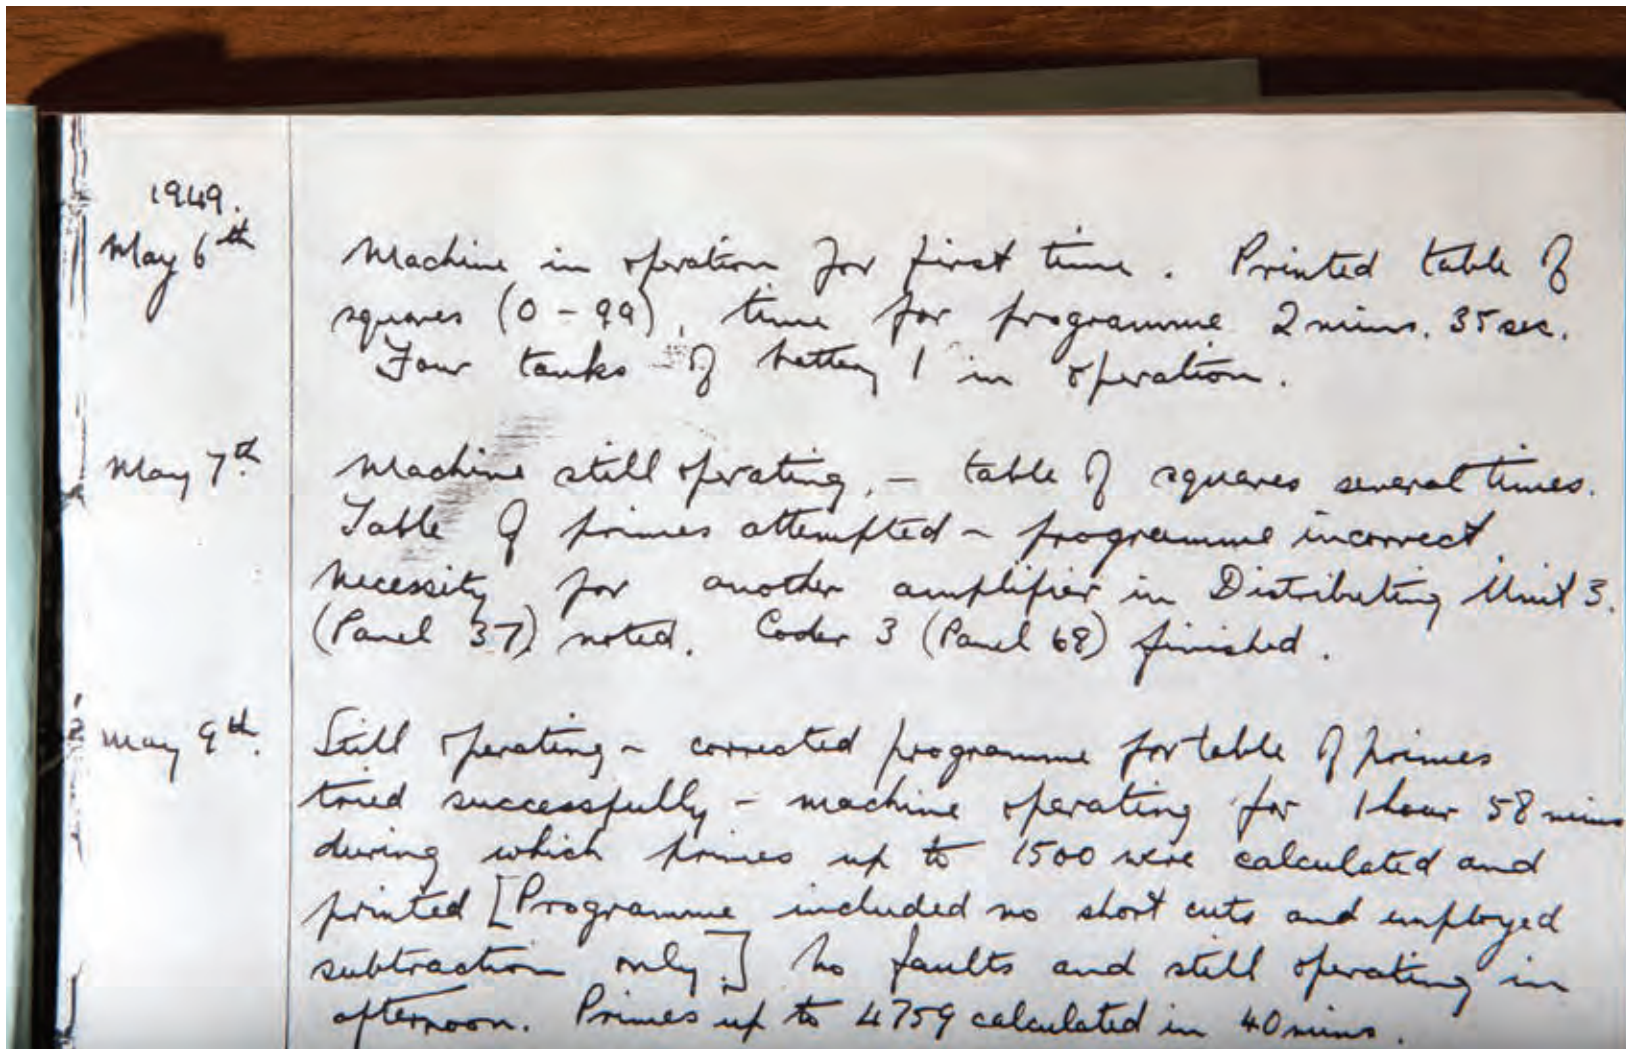 1949.
May 6th Machine in operation for first time. Printed table of
squares (0 - 99), time for programme 2 mins. 35 sec.
Four tanks of battery 1 in operation.
May 7th Machine still operating, - table of squares several times.
Table of primes attempted - programme incorrect.
Necessity for another amplifier in Distributing Unit 3.
(Panel 37) noted. Coder 3 (Panel 68) finished.
May 9th. Still operating - corrected programme for table of primes
tried successfully - machine operating for 1 hour 58 mins
during which primes up to 1500 were calculated and
printed [Programme included no short cuts and employed
subtraction only.] No faults and still operating in
afternoon. Primes up to 4759 calculated in 40 mins.